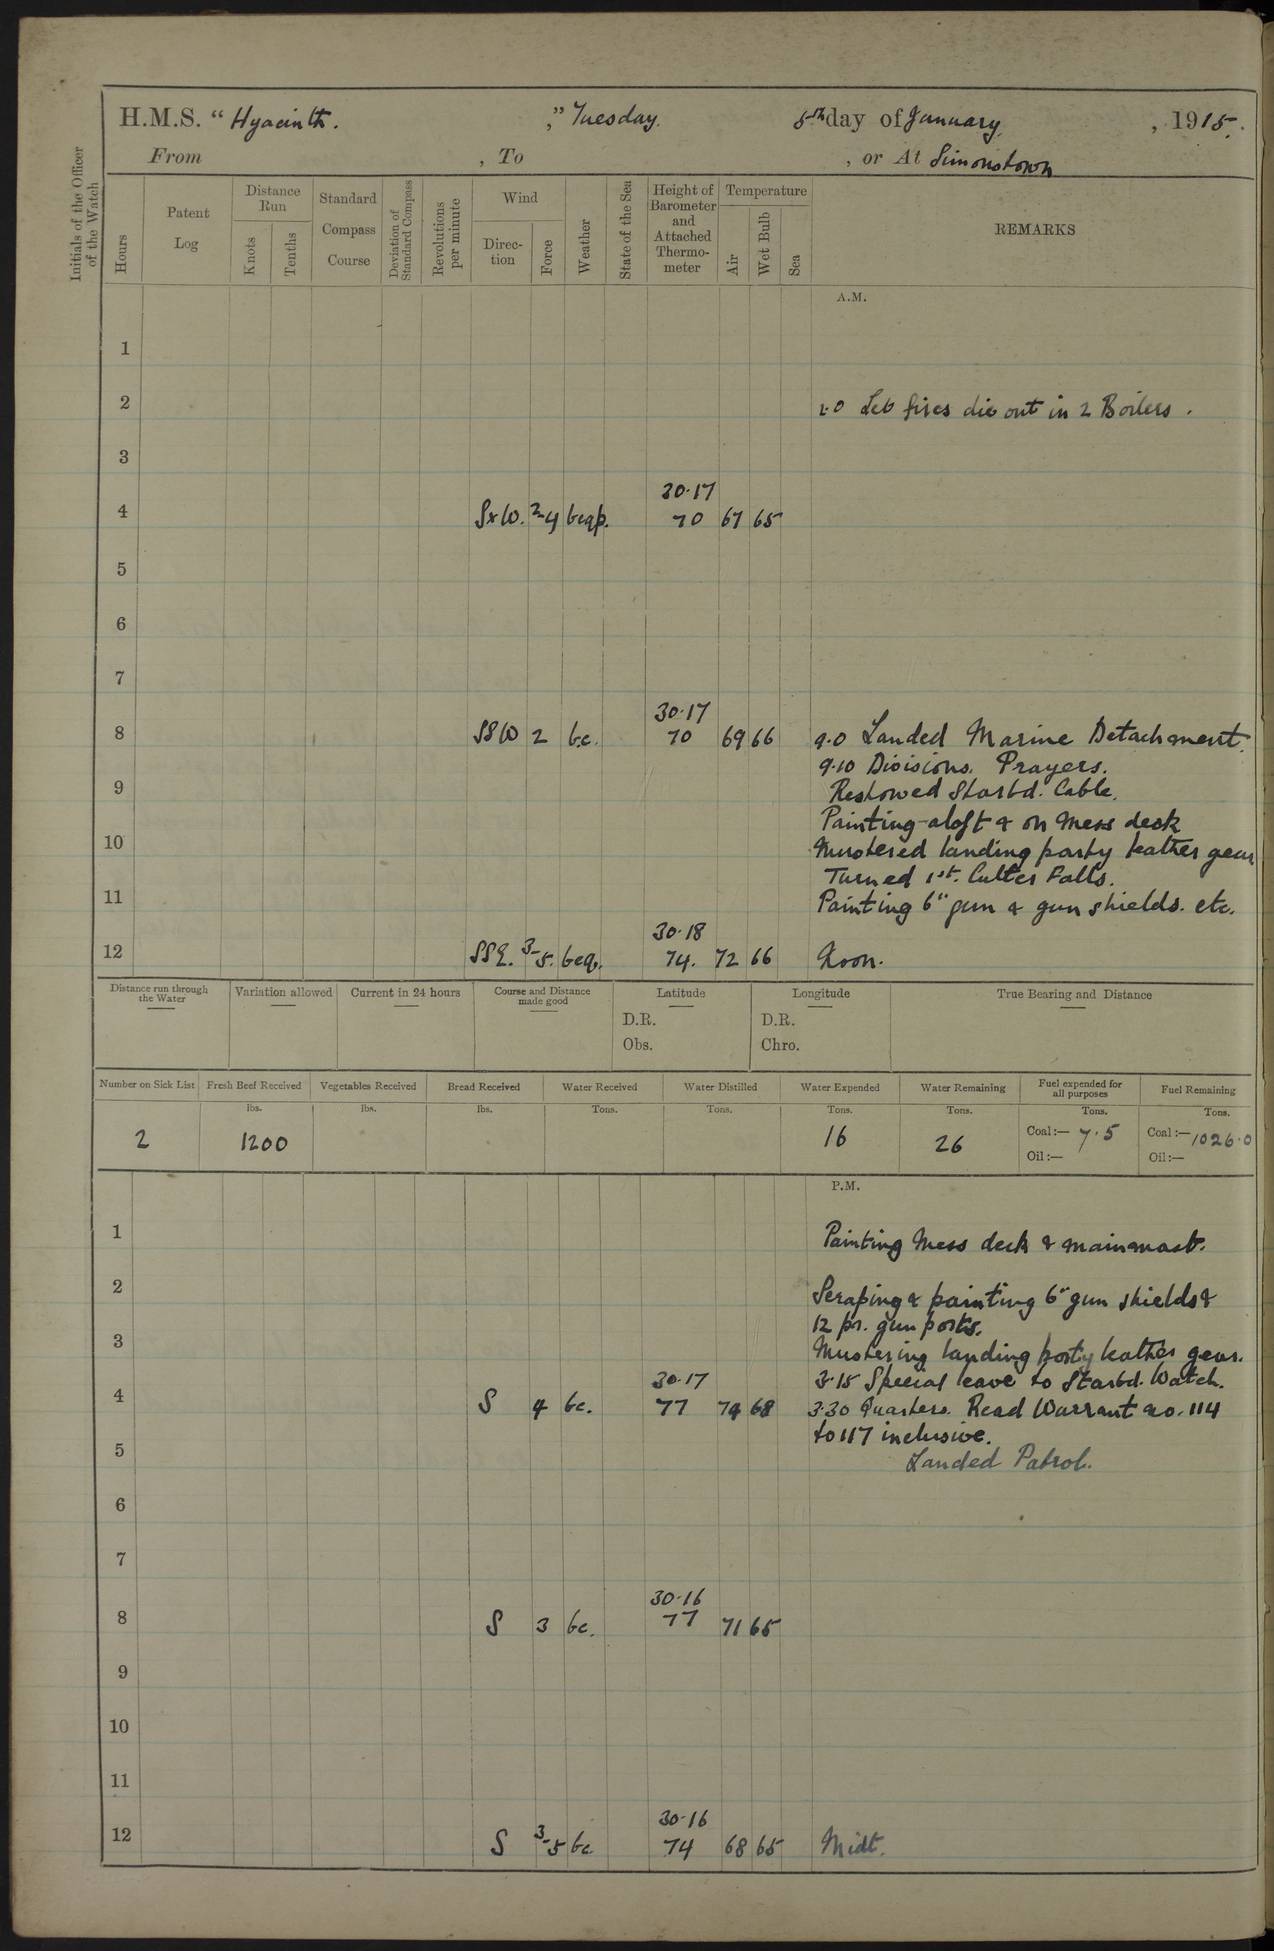 H.M.S. " Hyacinth. ," Tuesday. 5th day of January , 1915.
From , To , or At Simonstown
Initials of the Officer of the Watch
Hours
Patent Log
Distance Run
Knots
Tenths
Standard Compass Course
Deviation of Standard Compass
Revolutions per minute
Wind
Direc-tion
Force
Weather
State of the Sea
Height of Barometer and Attached Thermo-meter
Temperature
Air
Wet Bulb
Sea
REMARKS
A.M.
1
2 Let fires die out in 2 Boilers .
3
30.17
4 SxW. 2-4 bcqp. 70 67 65
5
6
7
30.17
8 SSW 2 bc. 70 69 66 9.0 Landed Marine Detachment.
9.10 Divisions. Prayers.
9 Restowed Starbd. Cable.
Painting aloft & on Mess deck
10 Mustered landing party leather gear
Turned 1st. Cutter Falls.
11 Painting 6" gun & gun shields. etc.
30.18
12 SSE. 3-5. bcq. 74. 72 66 Noon.
Distance run through the Water
Variation allowed
Current in 24 hours
Course and Distance made good
Latitude
D.R.
Obs.
Longitude
D.R.
Chro.
True Bearing and Distance
Number on Sick List Fresh Beef Received Vegetables Received Bread Received Water Received Water Distilled Water Expended Water Remaining Fuel expended for all purposes Fuel Remaining
lbs. lbs. lbs. Tons. Tons. Tons. Tons. Tons. Tons.
2 1200 16 26 Coal:— 7.5 Coal:— 1026.0
Oil:— Oil:—
P.M.
1 Painting Mess deck & mainmast.
2 Scraping & painting 6" gun shields &
12 pr. gun ports.
3 Mustering landing party leather gear.
30.17 3.15 Special leave to Starbd. Watch.
4 S 4 bc. 77 74 68 3.30 Quarters. Read Warrant no. 114
to 117 inclusive.
5 Landed Patrol.
6
7
30.16
8 S 3 bc. 77 71 65
9
10
11
30.16
12 S 3-5 bc 74 68 65 Midt.